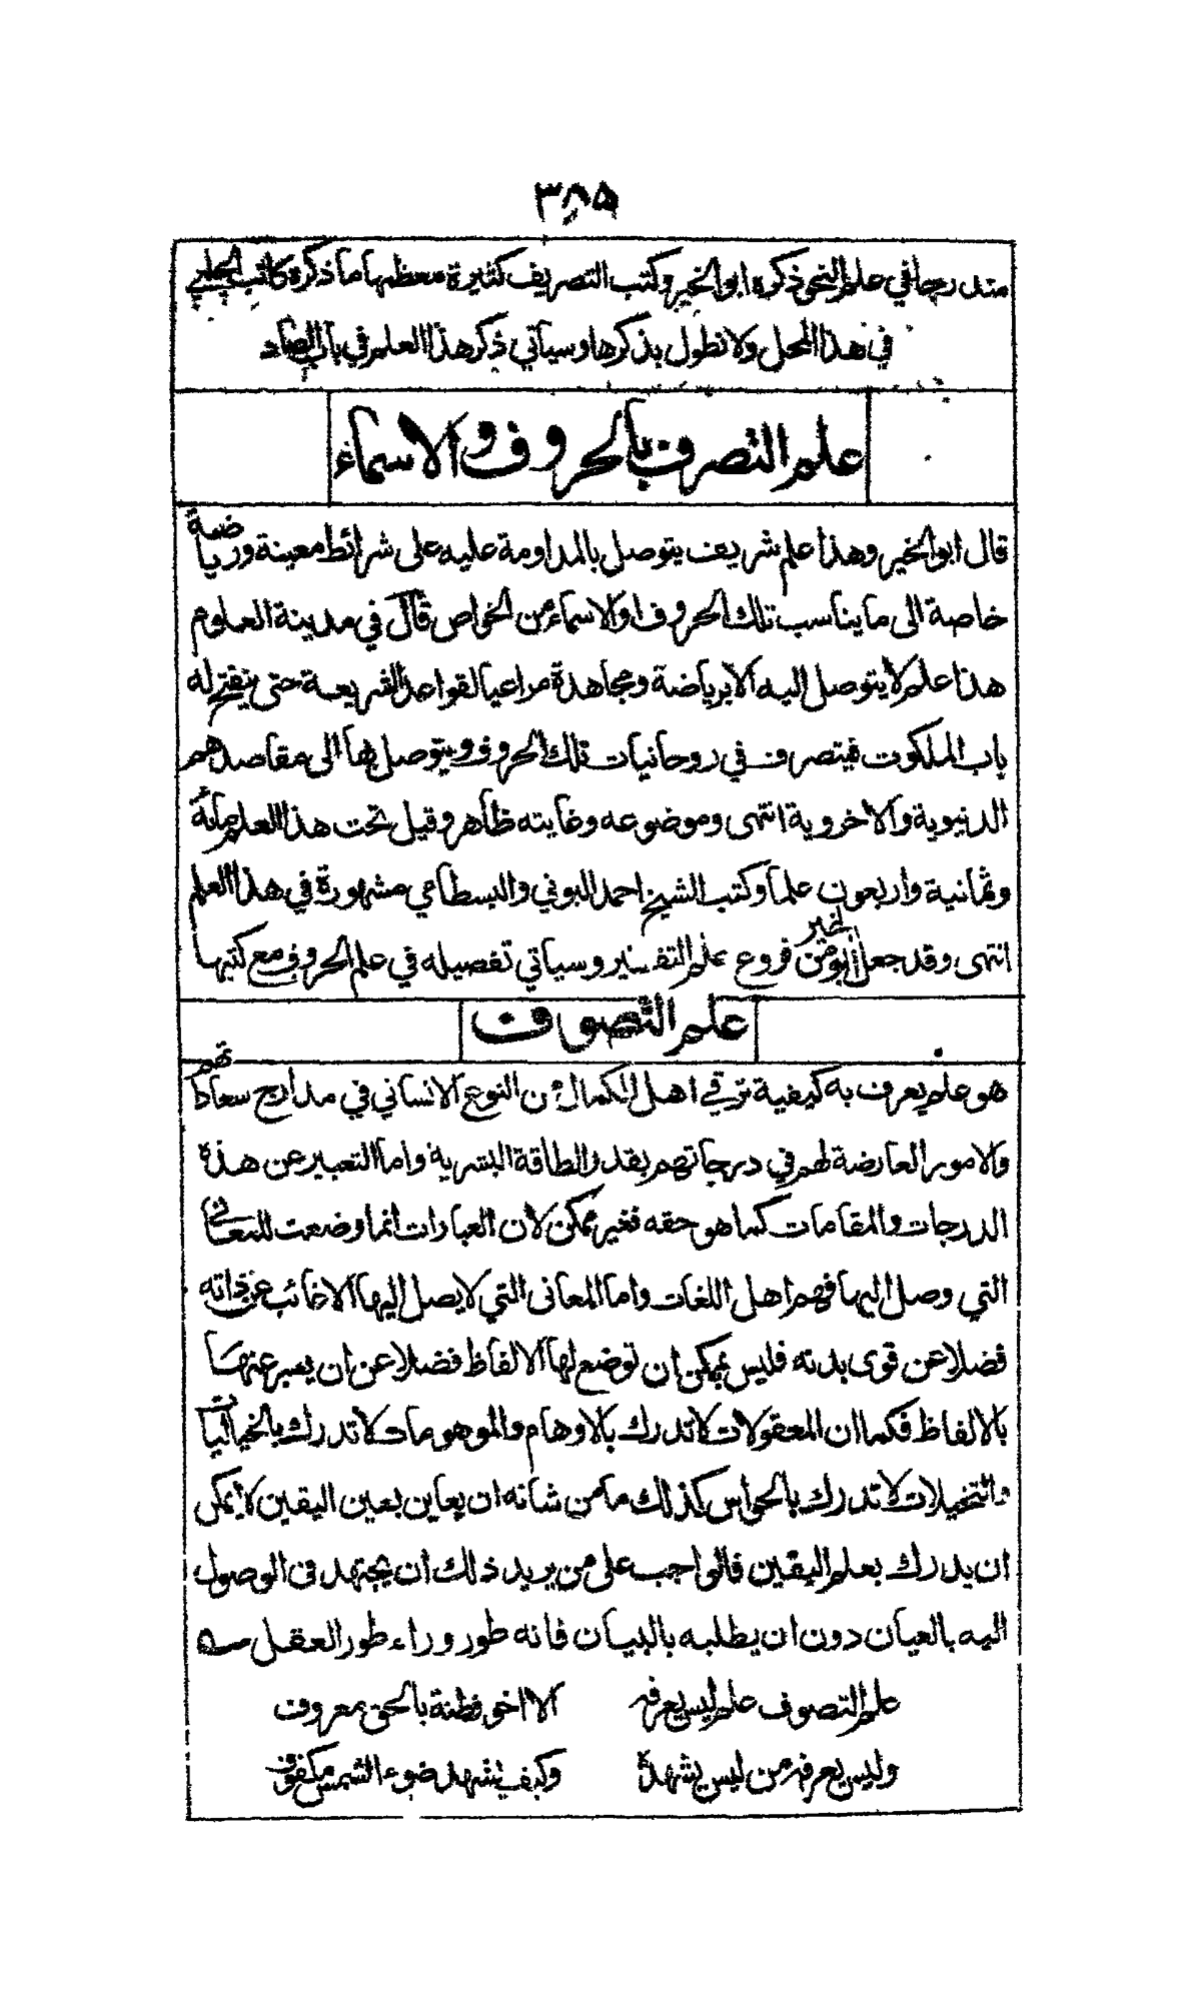 ٣٨٥
مندرجا في علم النحو ذكره ابو الخير وكتب التصريف كثيرة معظمها ما ذكره كاتب الجلبي
في هذا المحل ولا نطول بذكرها وسيأتي ذكر هذا العلم في باب الصاد
علم التصرف بالحروف والاسماء
قال ابو الخير وهذا علم شريف يتوصل بالمداومة عليه على شرائط معينة ورياضة
خاصة الى ما يناسب تلك الحروف او الاسماء من الخواص قال في مدينة العلوم
هذا علم لا يتوصل اليه الا برياضة ومجاهدة مراعيا لقواعد الشريعة حتى ينفتح له
باب الملكوت فيتصرف في روحانيات تلك الحروف ويتوصل بها الى مقاصدهم
الدنيوية والاخروية انتهى وموضوعه وغايته ظاهر وقيل تحت هذا العلم مائة
وثمانية واربعون علما وكتب الشيخ احمد البوني والبسطامي مشهورة في هذا العلم
انتهى وقد جعل ابو الخير من فروع علم التفسير وسيأتي تفصيله في علم الحروف مع كتبها
علم التصوف
هو علم يعرف به كيفية ترقي اهل الكمال من النوع الانساني في مدارج سعاداتهم
والامور العارضة لهم في درجاتهم بقدر الطاقة البشرية واما التعبير عن هذه
الدرجات والمقامات كما هو حقه فغير ممكن لان العبارات انما وضعت للمعاني
التي وصل اليها فهم اهل اللغات واما المعاني التي لا يصل اليها الا غائب عن ذاته
فضلا عن قوى بدنه فليس بممكن ان توضع لها الالفاظ فضلا عن ان يعبر عنها
بالالفاظ فكما ان المعقولات لا تدرك بالاوهام والموهومات لا تدرك بالخياليات
والتخيلات لا تدرك بالحواس كذلك ما من شانه ان يعاين بعين اليقين لا يمكن
ان يدرك بعلم اليقين فالواجب على من يريد ذلك ان يجتهد في الوصول
اليه بالعيان دون ان يطلبه بالبيان فانه طور وراء طور العقل
علم التصوف علم ليس يعرفه الا اخو فطنة بالحق معروف
وليس يعرفه من ليس يشهده وكيف يشهد ضوء الشمس مكفوف